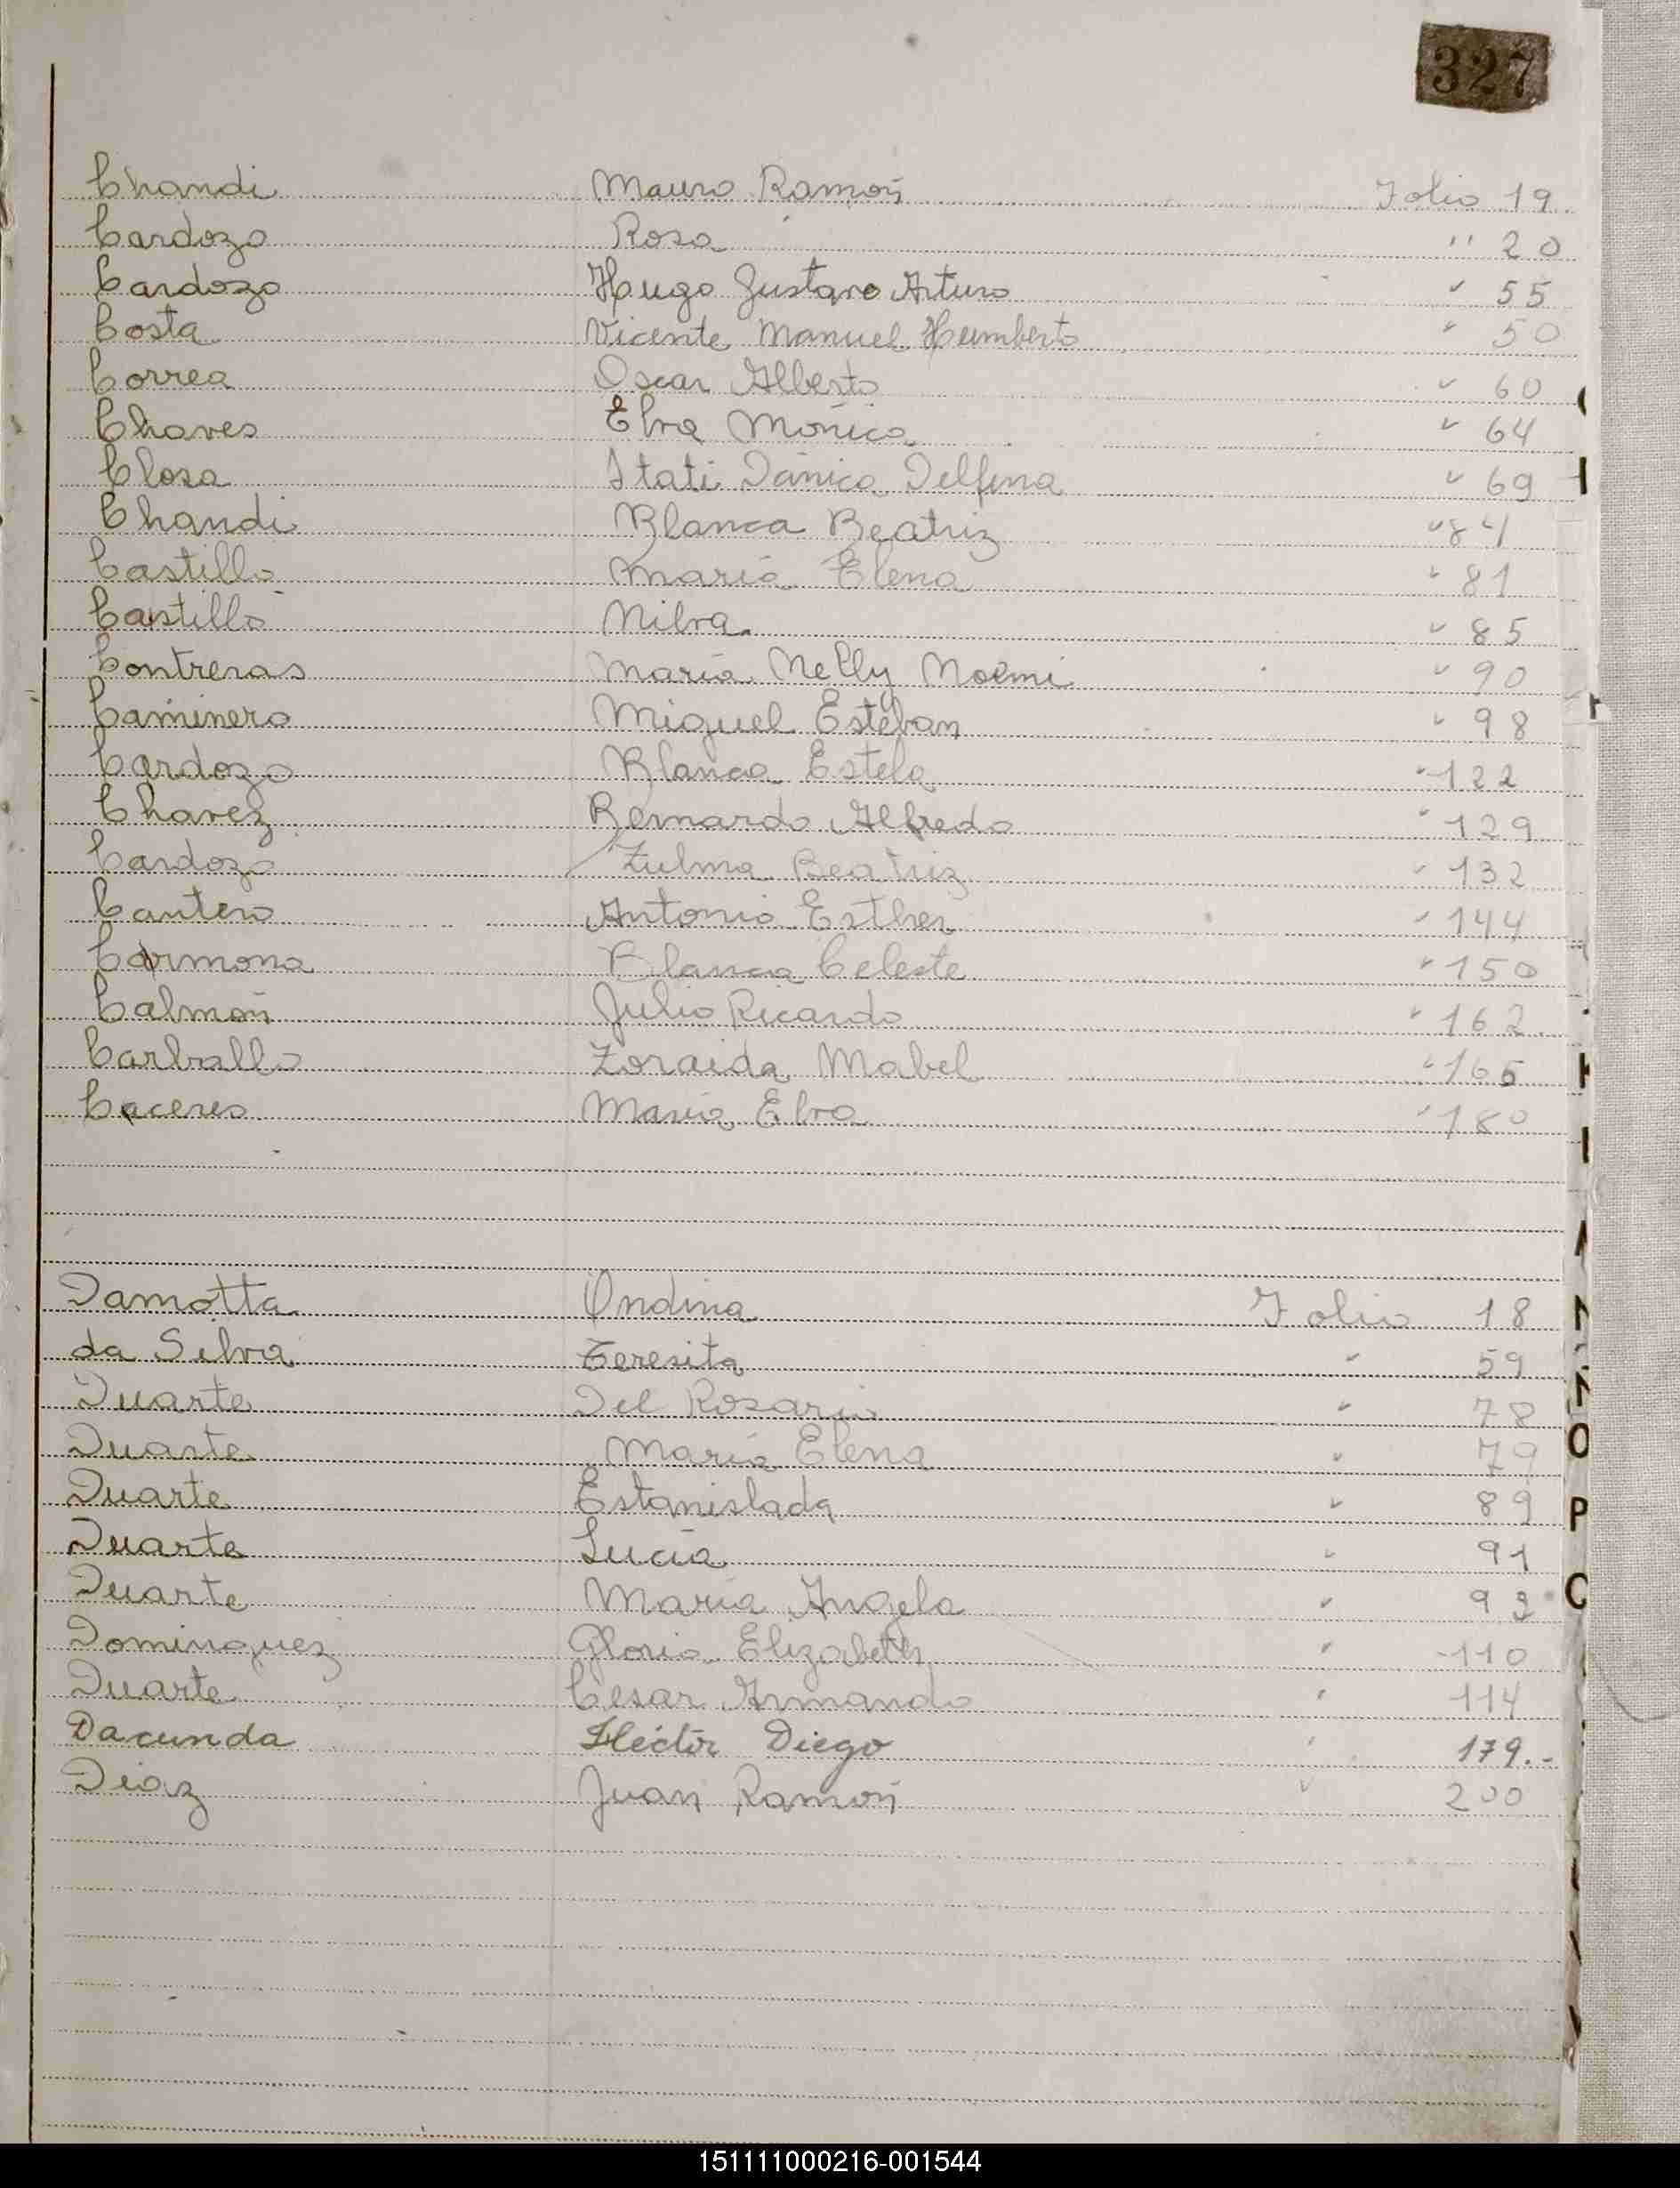 327
Chandi Mauro Ramón Folio 19
Cardozo Rosa " 20
Cardozo Hugo Gustavo Arturo " 55
Costa Vicente Manuel Humberto " 50
Correa Oscar Alberto " 60
Chaves Elva Mónica " 64
Closa Itati Dánica Delfina " 69
Chandi Blanca Beatriz " 84
Castillo María Elena " 81
Castillo Nilva " 85
Contreras María Nelly Noemi " 90
Caminero Miguel Esteban " 98
Cardozo Blanca Estela " 122
Chavez Bernardo Alfredo " 129
Cardozo Zulma Beatriz " 132
Cantero Antonia Esther " 144
Carmona Blanca Celeste " 150
Calmón Julio Ricardo " 162
Carballo Zoraida Mabel " 165
Caceres María Elva " 180
Damotta Ondina Folio 18
da Silva Teresita " 59
Duarte Del Rosario " 78
Duarte María Elena " 79
Duarte Estanislada " 89
Duarte Lucía " 91
Duarte María Angela " 92
Dominguez Gloria Elizabeth " 110
Duarte Cesar Armando " 114
Dacunda Héctor Diego " 179.-
Diaz Juan Ramón " 200
O
P
151111000216-001544